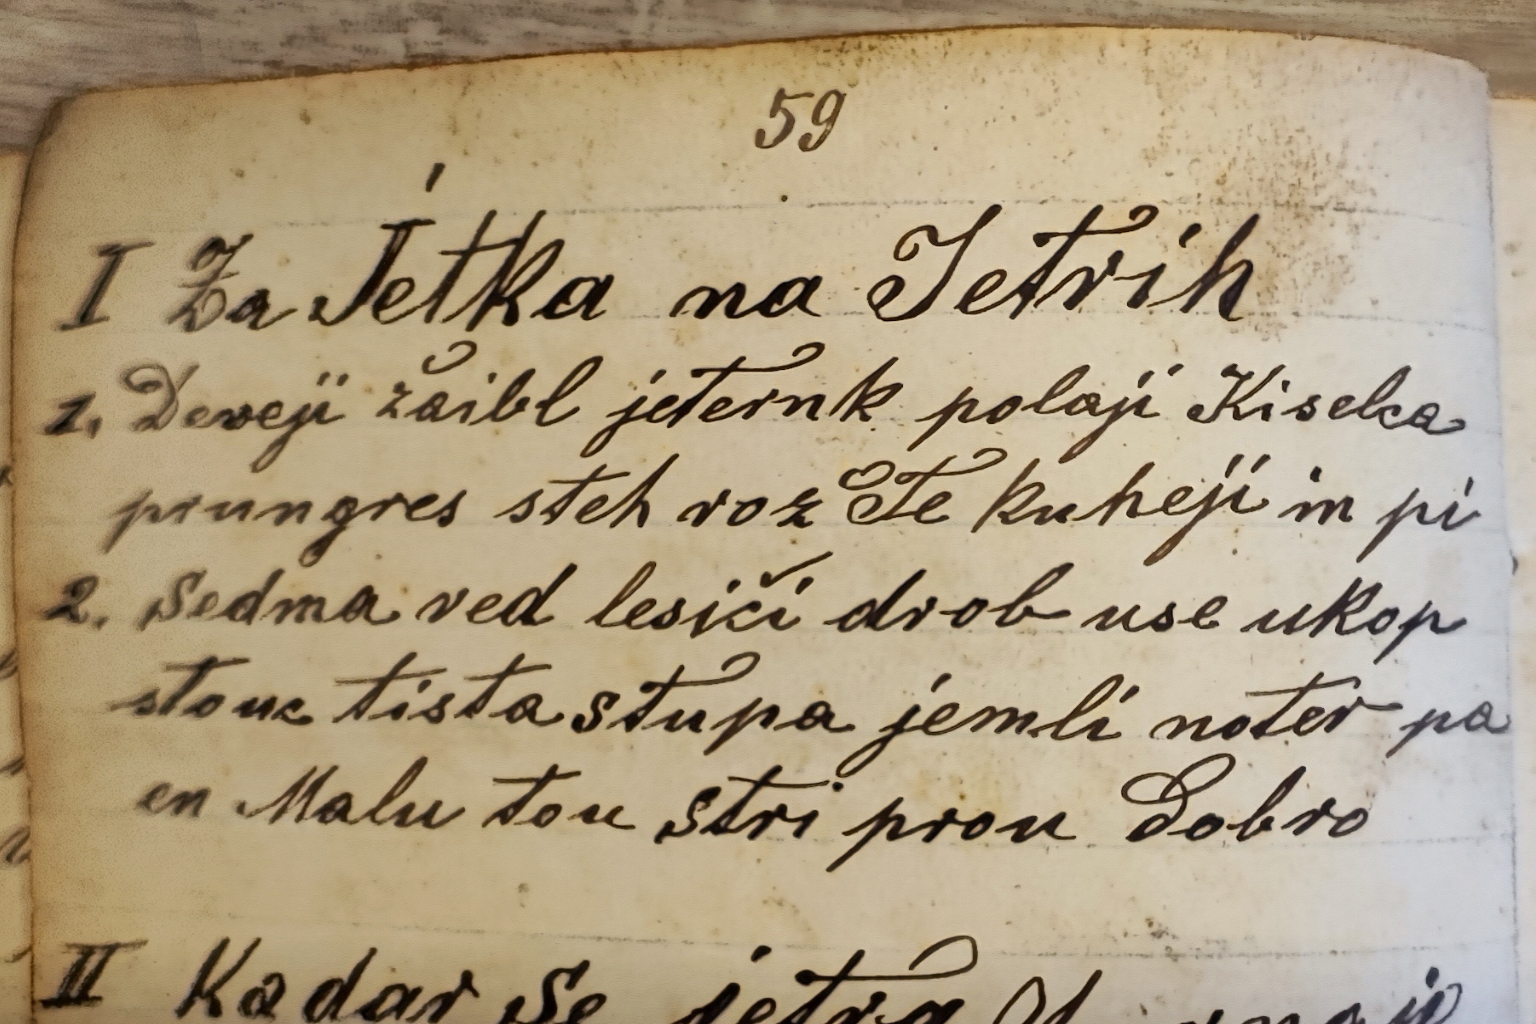 59
I Za Jetka na Jetrih
1. Deveji žaibl jeternk polaji Kiselca
prungres steh rož Te kuheji in pi
2. Sedma red lesiči drob use ukop
stouc tista stupa jemli noter pa
en Malu tou stri prou Dobro
II Kadar se jetra